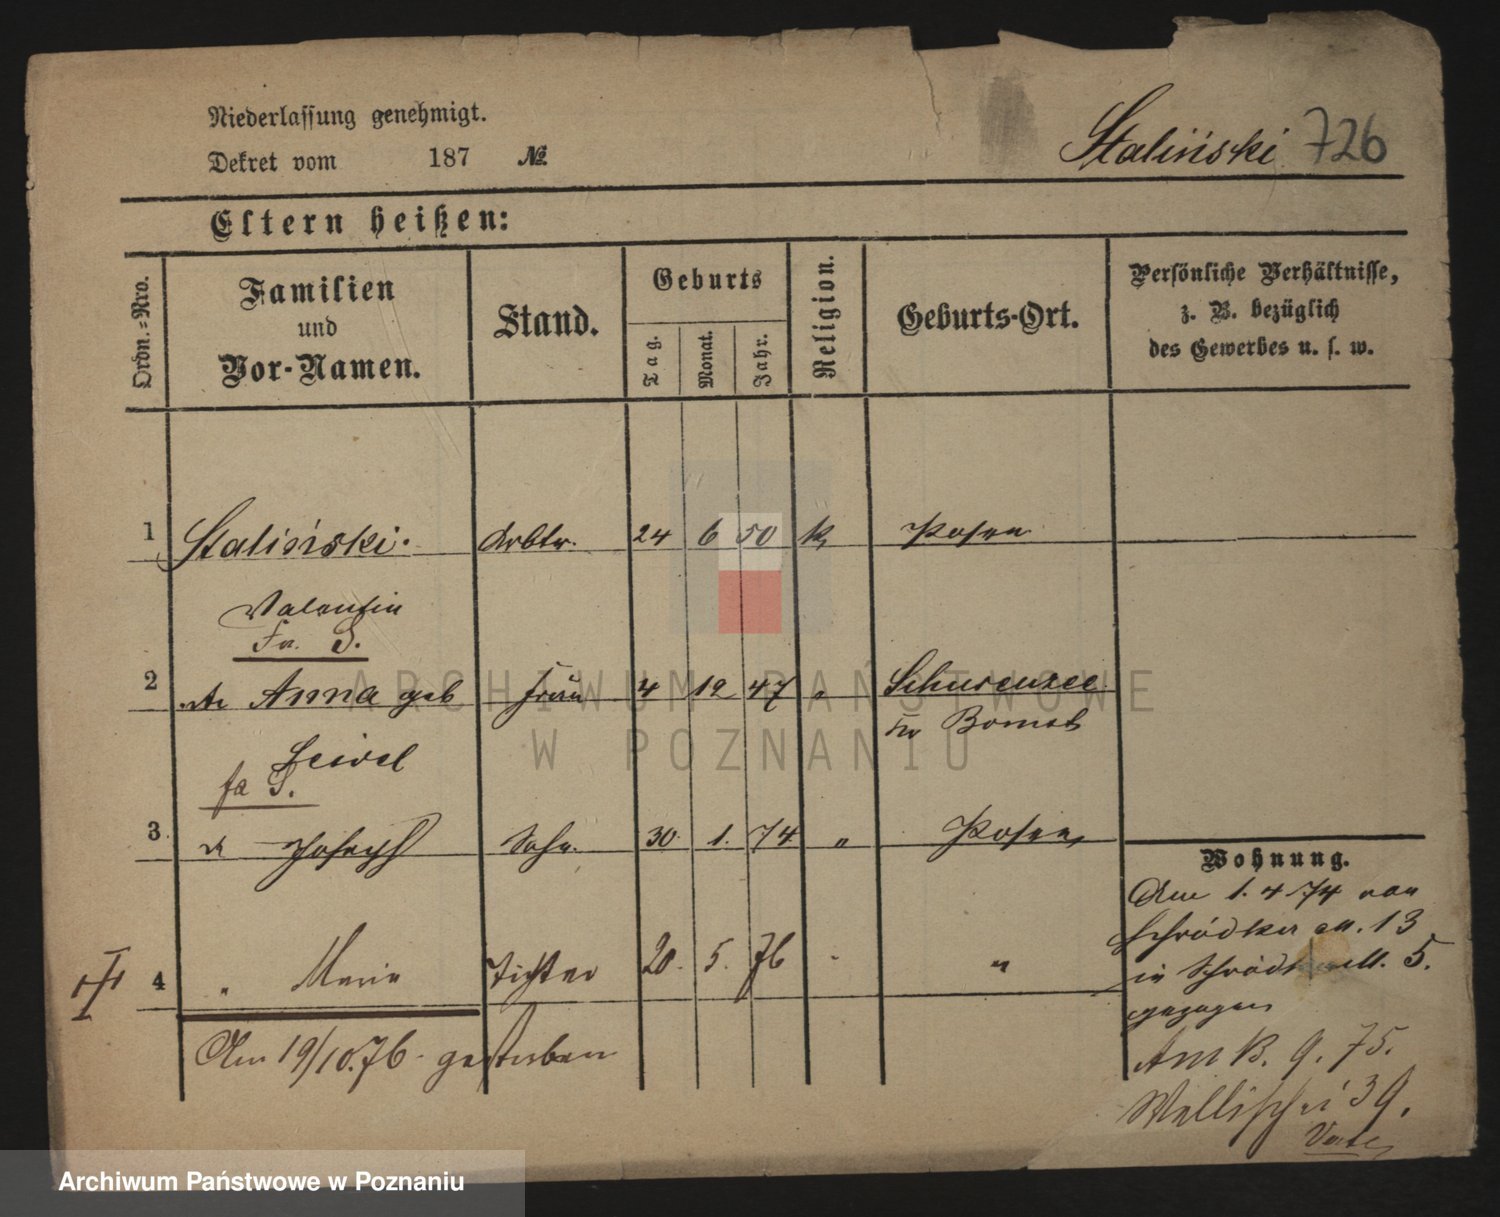 Niederlassung genehmigt.
Dekret vom 187 №
Staliński 726
Eltern heißen:
Ordn.-Nro.
Familien
und
Vor-Namen.
Stand.
Geburts
Tag.
Monat.
Jahr.
Religion.
Geburts-Ort.
Persönliche Verhältnisse,
z. B. bezüglich
des Gewerbes u. s. w.
1 Staliński. Arbtr. 24 6 50 k. Posen
Valentin
Fr. S.
2 Anna geb Frau 4 12 47 "
Bomst
S.
3 Joseph Sohn 30. 1. 74 " Posen
Wohnung.
Am 1. 4 74 von
Schrodka 13
in 5.
gezogen
4 " Marie Tochter 20. 5. 76 "
Am 19/10.76. gestorben
Am 9. 75.
Wallischei 39.
ARCHIWUM PAŃSTWOWE
W POZNANIU
Archiwum Państwowe w Poznaniu